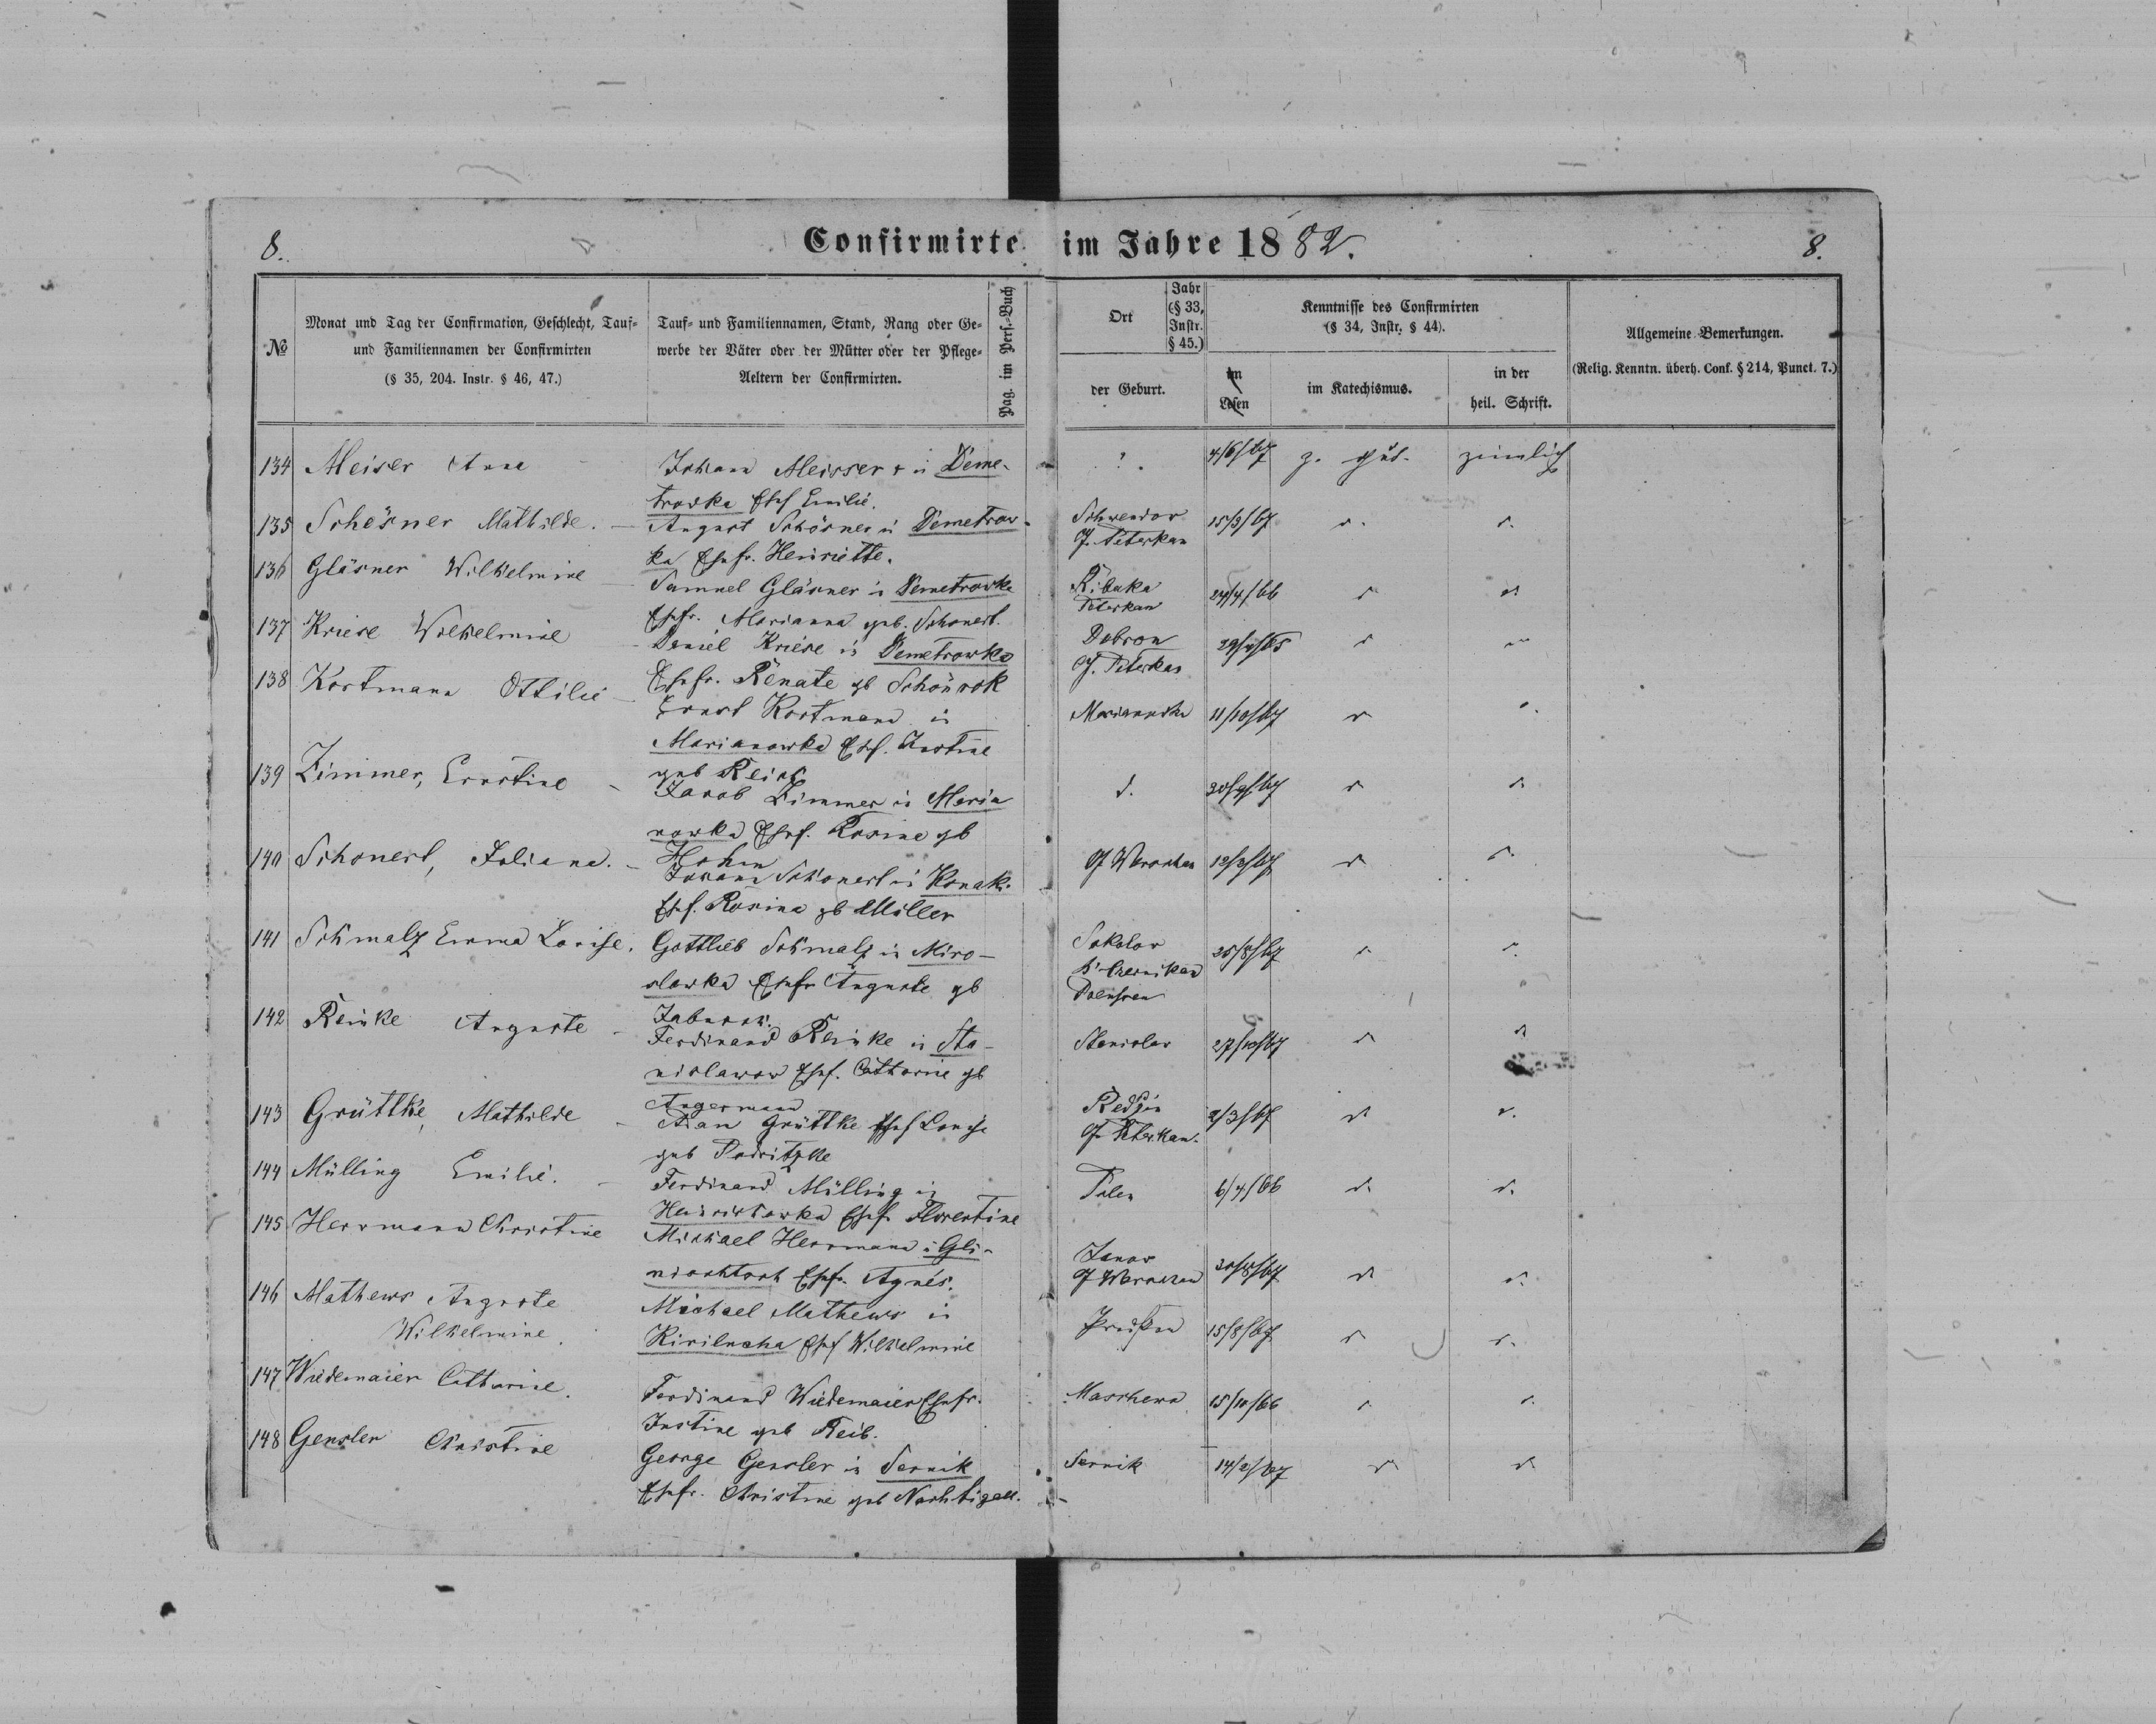 8.
Confirmirte im Jahre 1882.
8.
№
Monat und Tag der Confirmation, Geschlecht, Tauf-
und Familiennamen der Confirmirten
(§ 35, 204. Instr. § 46, 47.)
Tauf- und Familiennamen, Stand, Rang oder Ge-
werbe der Väter oder der Mütter oder der Pflege-
Aeltern der Confirmirten.
Pag. im Pers.-Buch
Ort
Jahr
(§ 33,
Instr.
§ 45.)
der Geburt.
Kenntnisse des Confirmirten
(§ 34, Instr. § 44).
im
Lesen
im Katechismus.
in der
heil. Schrift.
Allgemeine Bemerkungen.
(Relig. Kenntn. überh. Conf. § 214, Punct. 7.)
134 Meiser Anna
Johann Meisser + in Deme-
trowka Ehef Emilie.
? 4/6/67 z. gut. ziemlich
135 Schösner Mathilde.
August Schösner in Demetrow-
ka Ehefr. Henriette.
15/3/67
G. Peterkau
136 Gläsner Wilhelmine
Samuel Gläsner in Demetrowka
Ehefr. Marianna geb. Schonert.
Ribaka 24/4/66
Peterkau
137 Kriese Wilhelmine
Daniel Kriese in Demetrowka
Ehefr. Renate gb Schönrok
Dobron
G. Peterkau
138 Kortmann Ottilie
Ernst Kortmann in
Marianowka Ehf. Justine
geb Reich
11/10/67
139 Zimmer, Ernstine
Jacob Zimmer in Maria
nowka Ehef. Rosine gb
Hohm
d.
140 Schonert, Juliana.
Johann Schonert in Konak.
Ehf. Rosina gb Müller
G Warschau 12/2/67
141 Schmalz Emma Louise.
Gottlieb Schmalz in Miro-
slawka Ehefr Auguste gb
Sokolow 25/8/67
142 Reinke Auguste
Ferdinand Reinke in Sta-
nislawow Ehef. Catharine gb
Angermann
Stanislav 27/10/67
143 Grüttke, Mathilde
Grüttke Ehef Louise
geb Podritzke
2/3/67
G. Peterkau.
144 Mülling Emilie.
Ferdinand Mülling in
Heinrichowka Ehef. Florentine
Polen 6/4/66
145 Herrmann Christine
Michael Herrmann in Gli-
Ehefr. Agnes.
Janow
G Warschau
146 Mathews Auguste
Wilhelmine.
Michael Mathews in
Kirilucha Ehef Wilhelmine
Preußen 15/8/67
147 Wiedemaier Catharine.
Ferdinand Wiedemaier Ehefr.
Justine geb Reib.
15/10/66
148 Gensler Christine
George Gensler in Sernik
Ehefr. Christine geb Nachtigall.
Sernik 14/2/67